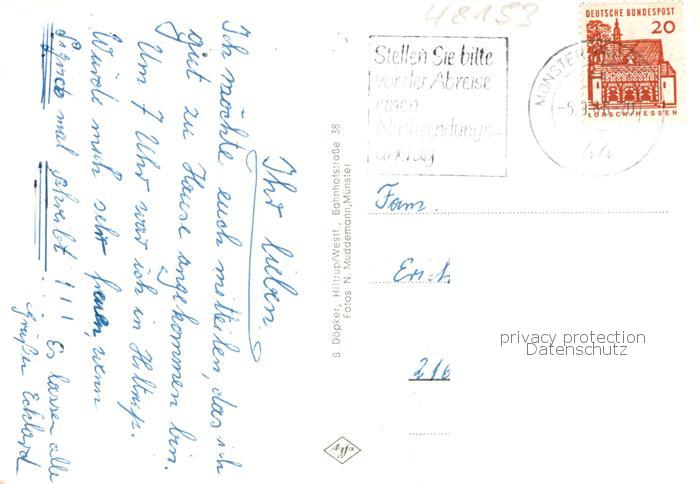 48153
DEUTSCHE BUNDESPOST
20
LORSCH/HESSEN
Stellen Sie bitte
vor der Abreise
einen
Nachsendungs-
antrag
MÜNSTER
44
Ihr lieben.
Ich möchte euch mitteilen, das ich
gut zu Hause angekommen bin.
Um 7 Uhr war ich in Hiltrup.
Würde mich sehr freuen wenn
mal schreibt !!! Es lassen alle
grüßen Eckhard
B. Döpker, Hiltrup/Westf., Bahnhofstraße 38
Fotos N. Muddemann, Münster
Fam.
216
privacy protection
Datenschutz